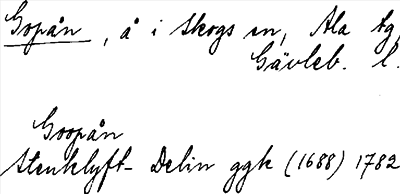 Gopån, å i Skogs sn, Ala tg,
Gävleb. l.
Goopån
Stenklyft- Delin ggk (1688) 1782